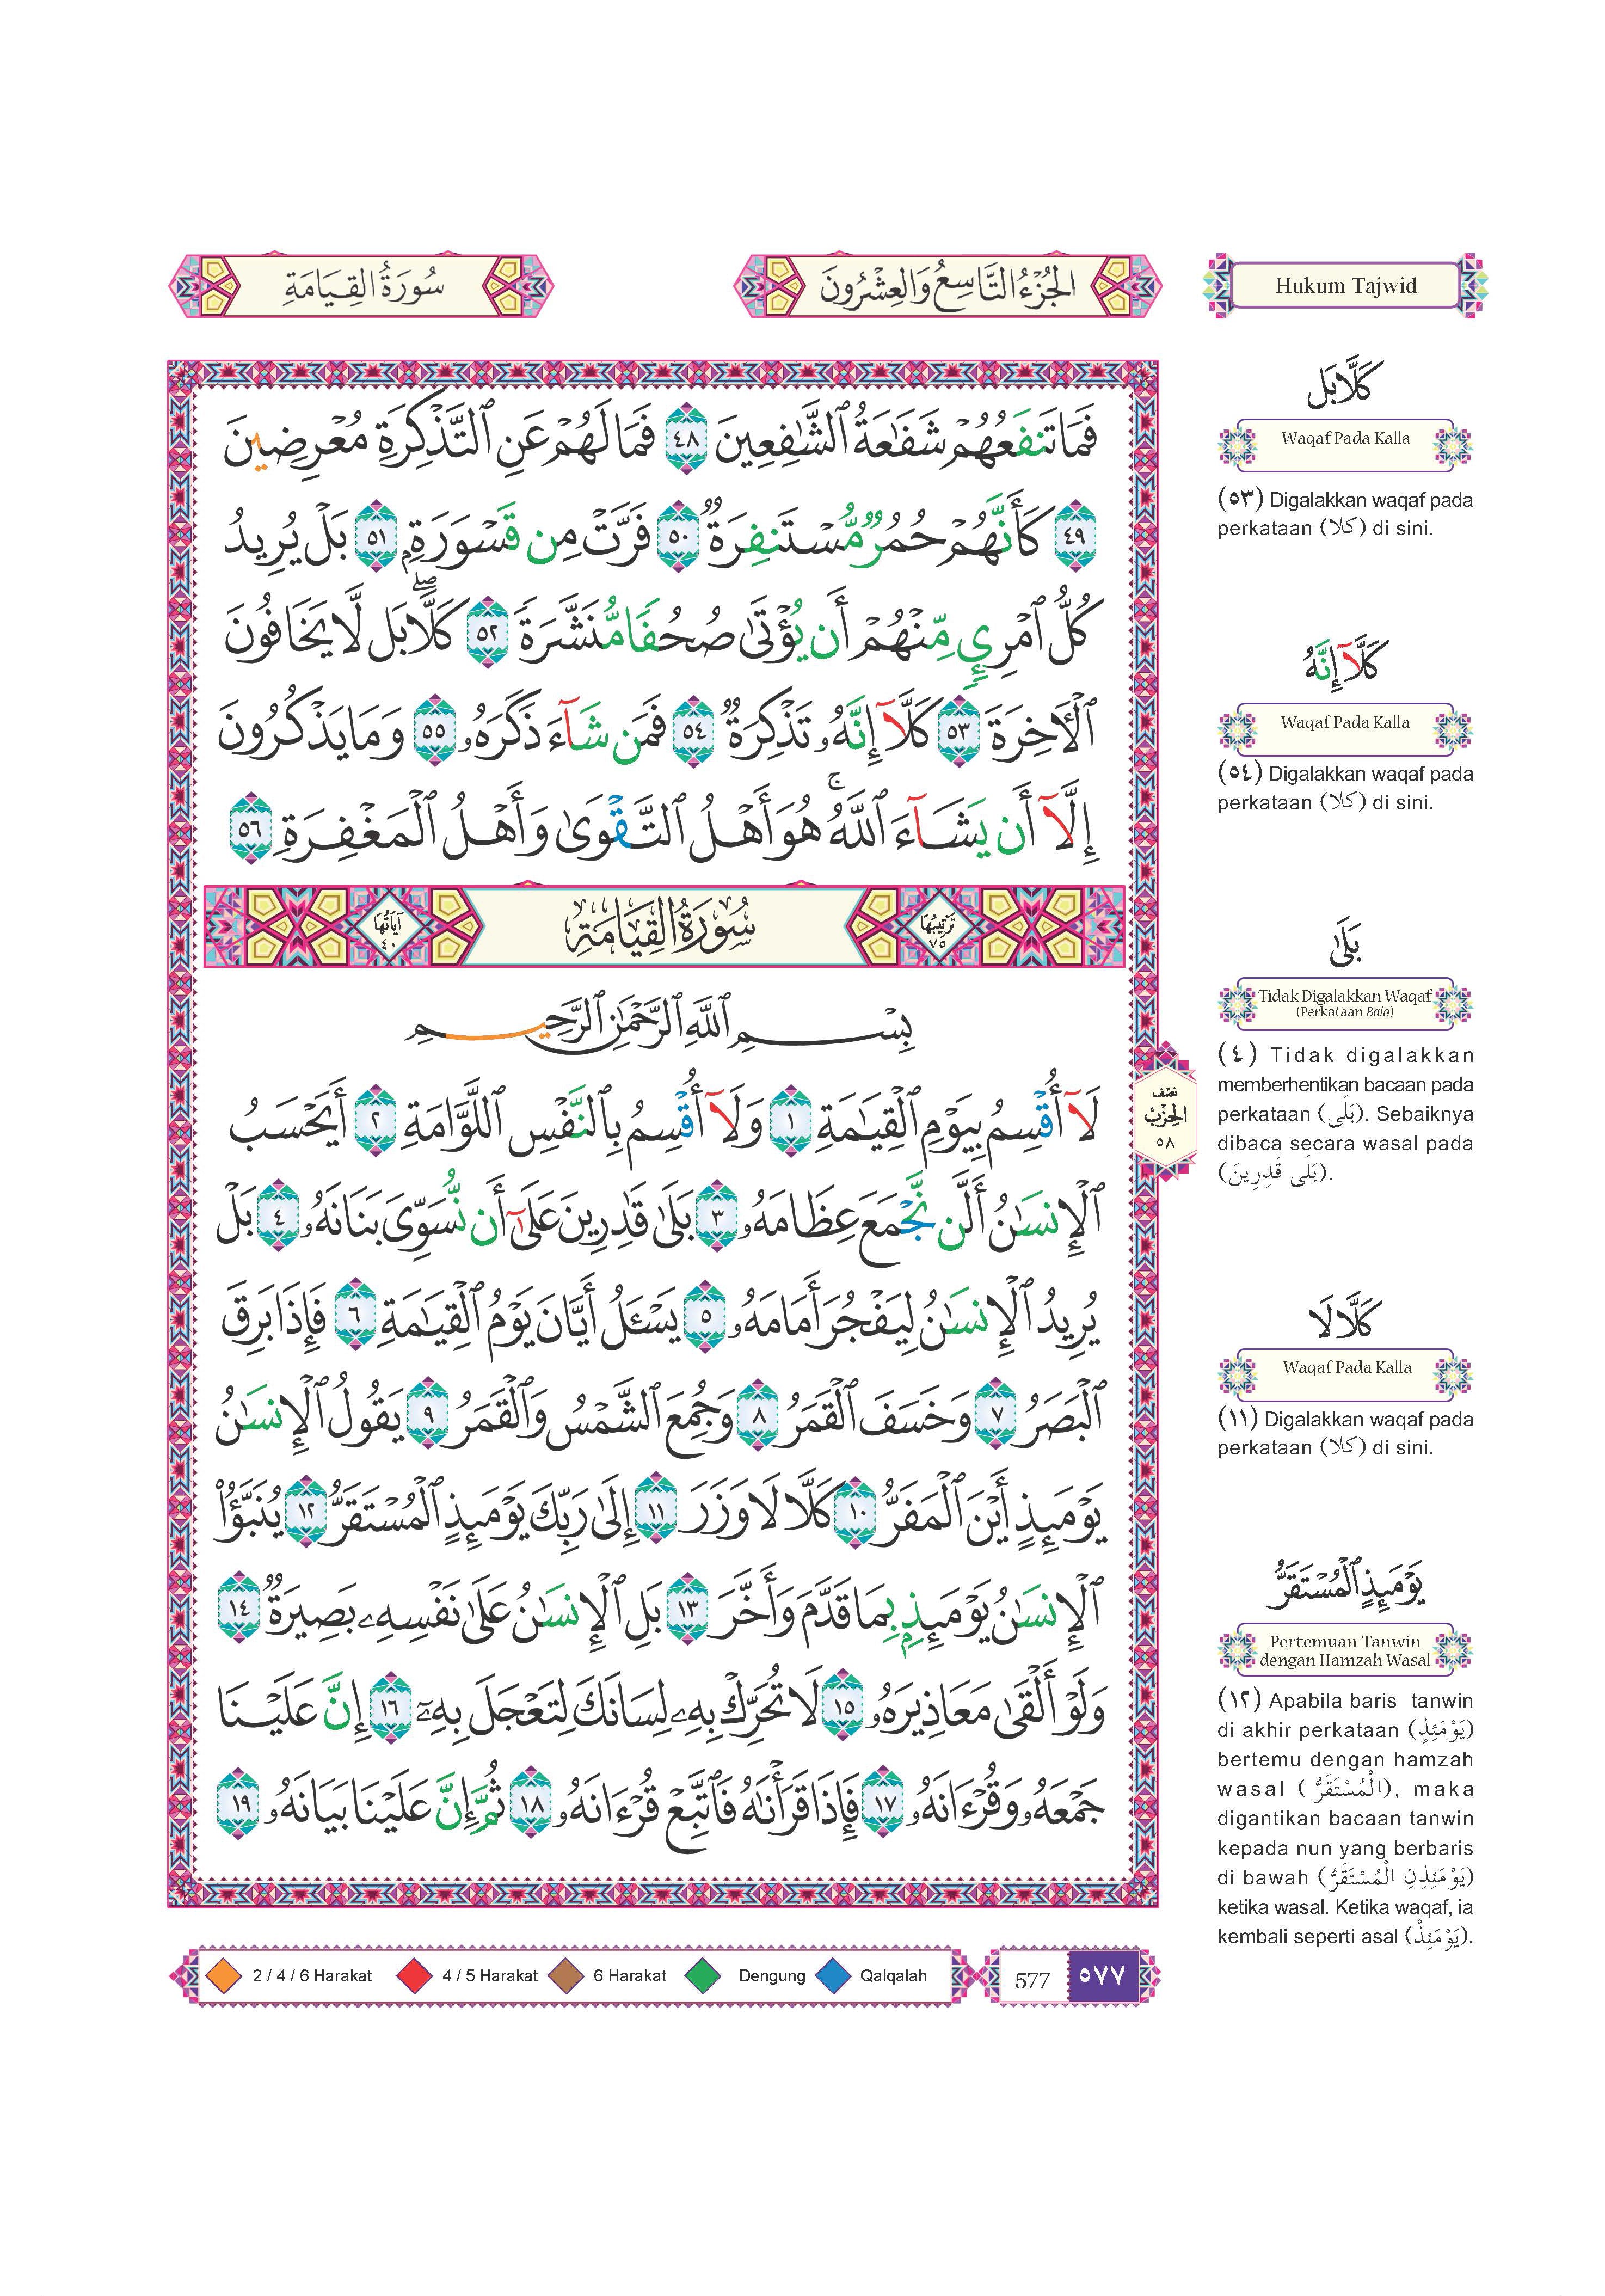 سُورَةُ الْقِيَامَةِ
الجُزْءُ التَّاسِعُ وَالْعِشْرُونَ
Hukum Tajwid
فَمَا تَنفَعُهُمْ شَفَٰعَةُ ٱلشَّٰفِعِينَ ٤٨ فَمَا لَهُمْ عَنِ ٱلتَّذْكِرَةِ مُعْرِضِينَ
٤٩ كَأَنَّهُمْ حُمُرٌ مُّسْتَنفِرَةٌ ٥٠ فَرَّتْ مِن قَسْوَرَةٍۭ ٥١ بَلْ يُرِيدُ
كُلُّ ٱمْرِئٍ مِّنْهُمْ أَن يُؤْتَىٰ صُحُفًا مُّنَشَّرَةً ٥٢ كَلَّاۖ بَل لَّا يَخَافُونَ
ٱلْأٓخِرَةَ ٥٣ كَلَّآ إِنَّهُۥ تَذْكِرَةٌ ٥٤ فَمَن شَآءَ ذَكَرَهُۥ ٥٥ وَمَا يَذْكُرُونَ
إِلَّآ أَن يَشَآءَ ٱللَّهُۚ هُوَ أَهْلُ ٱلتَّقْوَىٰ وَأَهْلُ ٱلْمَغْفِرَةِ ٥٦
تَرْتِيبُهَا ٧٥ سُورَةُ الْقِيَامَةِ آيَاتُهَا ٤٠
بِسْمِ ٱللَّهِ ٱلرَّحْمَٰنِ ٱلرَّحِيمِ
لَآ أُقْسِمُ بِيَوْمِ ٱلْقِيَٰمَةِ ١ وَلَآ أُقْسِمُ بِٱلنَّفْسِ ٱللَّوَّامَةِ ٢ أَيَحْسَبُ
ٱلْإِنسَٰنُ أَلَّن نَّجْمَعَ عِظَامَهُۥ ٣ بَلَىٰ قَٰدِرِينَ عَلَىٰٓ أَن نُّسَوِّىَ بَنَانَهُۥ ٤ بَلْ
يُرِيدُ ٱلْإِنسَٰنُ لِيَفْجُرَ أَمَامَهُۥ ٥ يَسْـَٔلُ أَيَّانَ يَوْمُ ٱلْقِيَٰمَةِ ٦ فَإِذَا بَرِقَ
ٱلْبَصَرُ ٧ وَخَسَفَ ٱلْقَمَرُ ٨ وَجُمِعَ ٱلشَّمْسُ وَٱلْقَمَرُ ٩ يَقُولُ ٱلْإِنسَٰنُ
يَوْمَئِذٍ أَيْنَ ٱلْمَفَرُّ ١٠ كَلَّا لَا وَزَرَ ١١ إِلَىٰ رَبِّكَ يَوْمَئِذٍ ٱلْمُسْتَقَرُّ ١٢ يُنَبَّؤُا۟
ٱلْإِنسَٰنُ يَوْمَئِذٍۭ بِمَا قَدَّمَ وَأَخَّرَ ١٣ بَلِ ٱلْإِنسَٰنُ عَلَىٰ نَفْسِهِۦ بَصِيرَةٌ ١٤
وَلَوْ أَلْقَىٰ مَعَاذِيرَهُۥ ١٥ لَا تُحَرِّكْ بِهِۦ لِسَانَكَ لِتَعْجَلَ بِهِۦٓ ١٦ إِنَّ عَلَيْنَا
جَمْعَهُۥ وَقُرْءَانَهُۥ ١٧ فَإِذَا قَرَأْنَٰهُ فَٱتَّبِعْ قُرْءَانَهُۥ ١٨ ثُمَّ إِنَّ عَلَيْنَا بَيَانَهُۥ ١٩
نصف
الحزب
٥٨
كَلَّا بَل
Waqaf Pada Kalla
(٥٣) Digalakkan waqaf pada
perkataan (كلا) di sini.
كَلَّآ إِنَّهُ
Waqaf Pada Kalla
(٥٤) Digalakkan waqaf pada
perkataan (كلا) di sini.
بَلَىٰ
Tidak Digalakkan Waqaf
(Perkataan Bala)
(٤) Tidak digalakkan
memberhentikan bacaan pada
perkataan (بَلَى). Sebaiknya
dibaca secara wasal pada
(بَلَى قَدِرِينَ).
كَلَّا لَا
Waqaf Pada Kalla
(١١) Digalakkan waqaf pada
perkataan (كلا) di sini.
يَوْمَئِذٍ ٱلْمُسْتَقَرُّ
Pertemuan Tanwin
dengan Hamzah Wasal
(١٢) Apabila baris tanwin
di akhir perkataan (يَوْمَئِذٍ)
bertemu dengan hamzah
wasal (الْمُسْتَقَرُّ), maka
digantikan bacaan tanwin
kepada nun yang berbaris
di bawah (يَوْمَئِذِنِ الْمُسْتَقَرُّ)
ketika wasal. Ketika waqaf, ia
kembali seperti asal (يَوْمَئِذْ).
2 / 4 / 6 Harakat 4 / 5 Harakat 6 Harakat Dengung Qalqalah
577 ٥٧٧